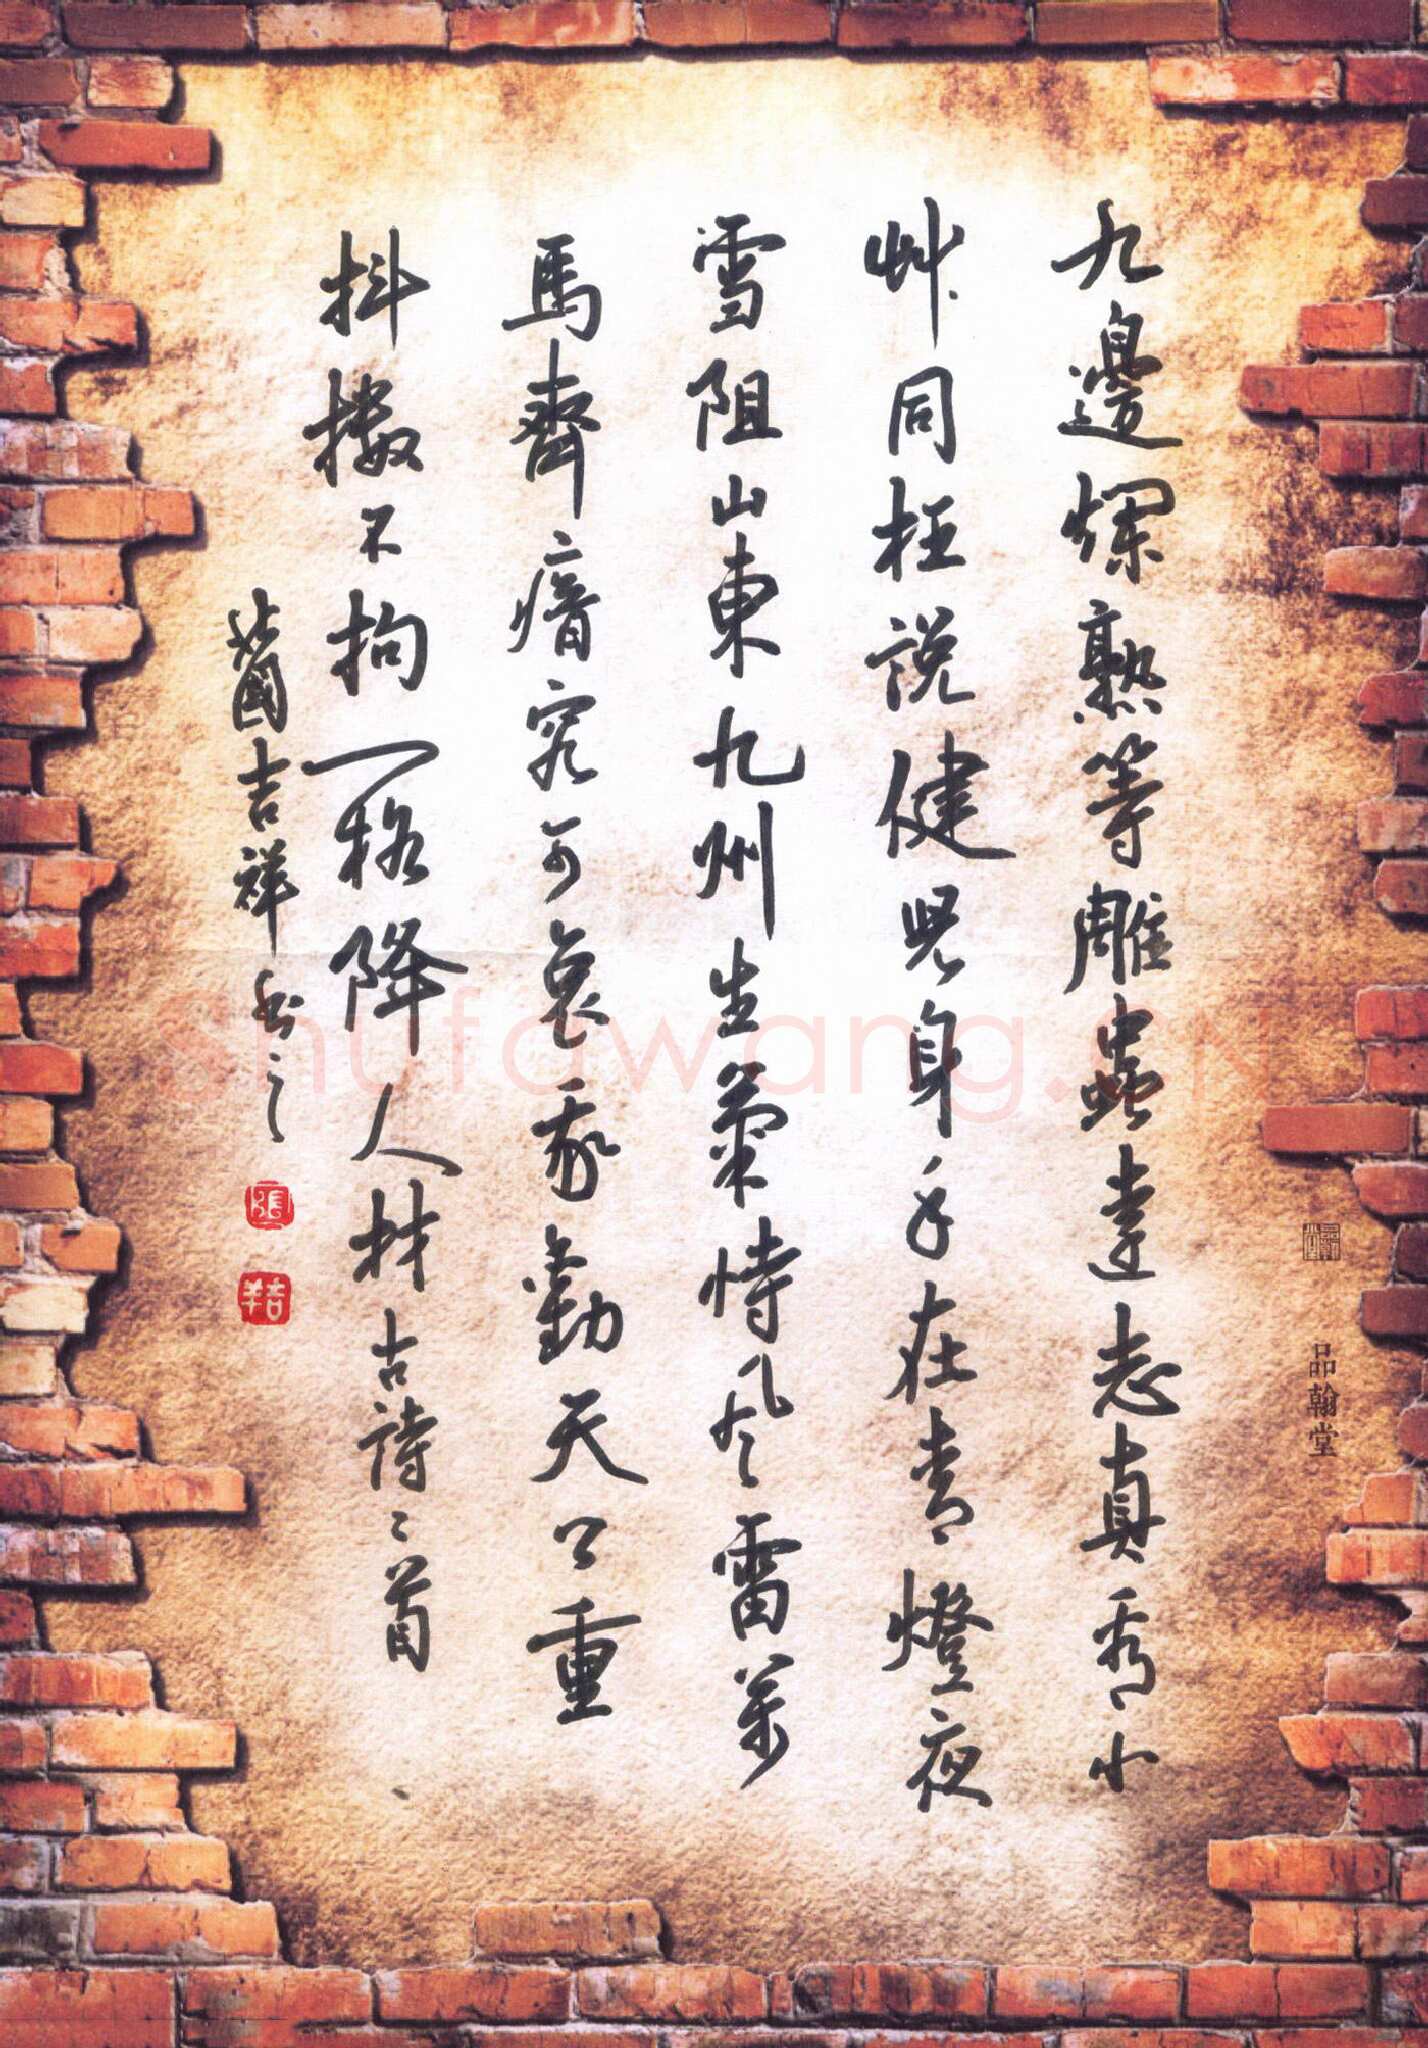 九邊爛熟等雕蟲遠志真看小
艸同枉说健兒身手在青燈夜
雪阻山東九州生氣恃風雷萬
馬齊瘖究可哀我勸天公重
抖擻不拘一格降人材古詩二首
吉祥书之
張
吉祥
品翰堂
shufawang.CN